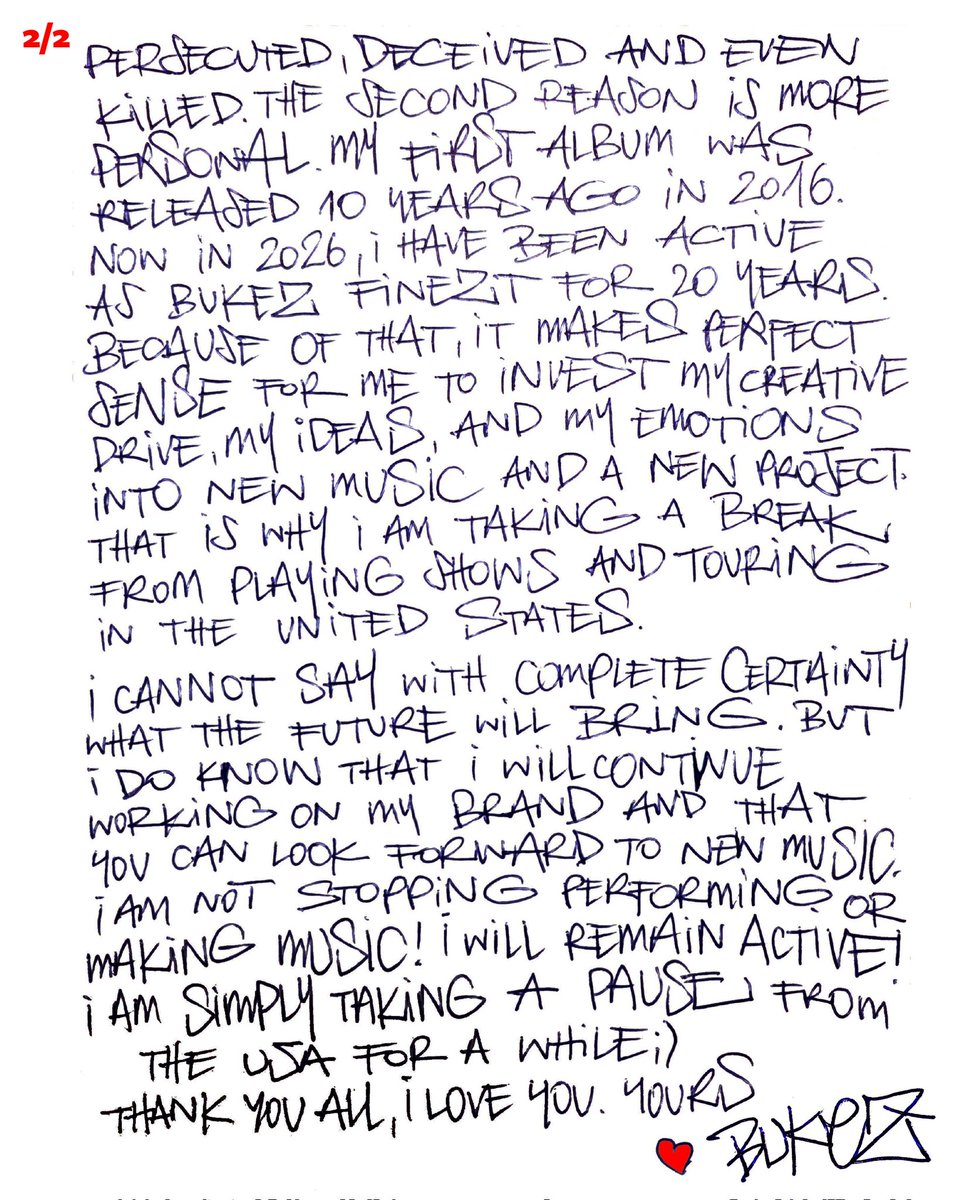 2/2
PERSECUTED, DECEiVED AND EVEN
KiLLED. THE SECOND REASON iS MORE
PERSONAL. MY FiRST ALBUM WAS
RELEASED 10 YEARS AGO iN 2016.
NOW iN 2026, i HAVE BEEN ACTiVE
AS BUKEZ FiNEZiT FOR 20 YEARS.
BECAUSE OF THAT, iT MAKES PERFECT
SENSE FOR ME TO iNVEST MY CREATiVE
DRiVE, MY iDEAS, AND MY EMOTiONS
iNTO NEW MUSiC AND A NEW PROJECT.
THAT iS WHY i AM TAKiNG A BREAK
FROM PLAYiNG SHOWS AND TOURiNG
iN THE UNiTED STATES.
i CANNOT SAY WiTH COMPLETE CERTAiNTY
WHAT THE FUTURE WiLL BRING. BUT
i DO KNOW THAT i WiLL CONTINUE
WORKiNG ON MY BRAND AND THAT
YOU CAN LOOK FORWARD TO NEW MUSIC.
i AM NOT STOPPiNG PERFORMiNG OR
MAKiNG MUSiC! i WiLL REMAIN ACTIVE!
i AM SiMPLY TAKiNG A PAUSE FROM
THE USA FOR A WHiLE ;)
THANK YOU ALL, i LOVE YOU. YOURS
BUKEZ